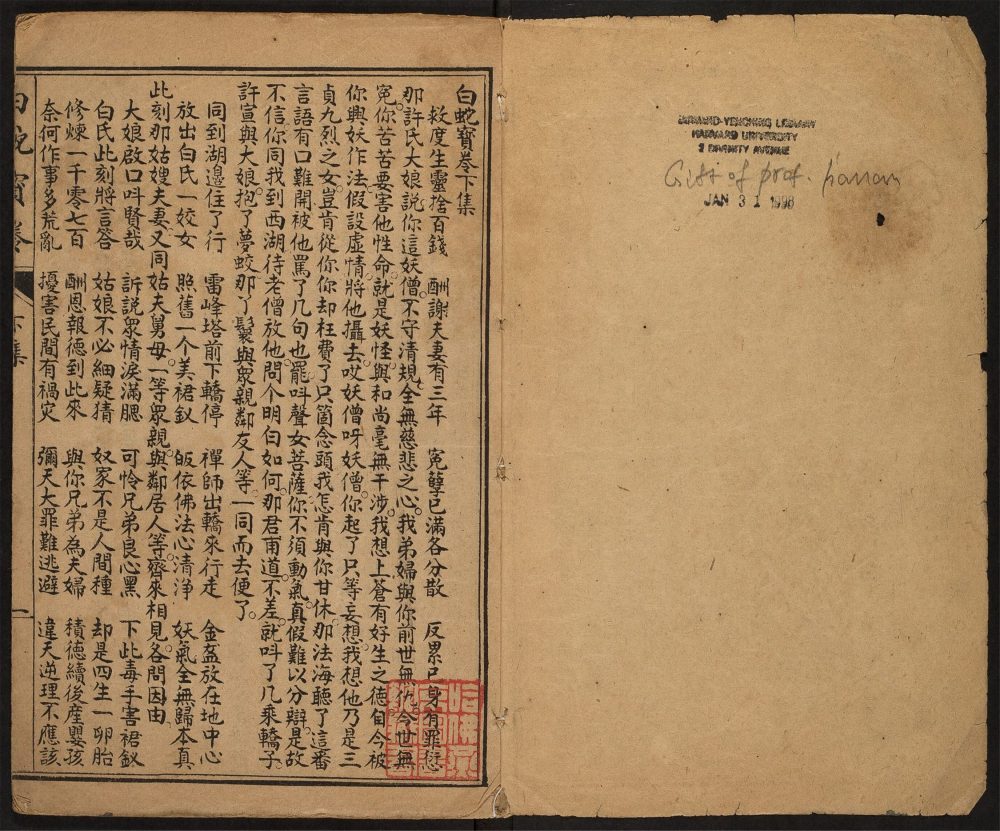 白蛇寳卷下集
救度生靈捨百錢 酬謝夫妻有三年 寃孽已滿各分散 反累已身有罪愆
那許氏大娘說你這妖僧不守清規全無慈悲之心我弟婦與你前世無仇今世無
寃你苦苦要害他性命就是妖怪與和尚毫無干涉我想上蒼有好生之德自今被
你興妖作法假設虛情將他攝去哎妖僧呀妖僧你起了只等妄想我想他乃是三
貞九烈之女豈肯從你你却枉費了只箇念頭我怎肯與你甘休那法海聽了這番
言語有口難開被他罵了几句也罷呌聲女菩薩你不須動氣真假難以分辯是故
不信你同我到西湖待老僧放他問个明白如何那君甫道不差就呌了几乘轎子
許宣與大娘抱了夢蛟那了鬟與眾親鄰友人等一同而去便了
同到湖邊住了行 雷峰塔前下轎停 禪師出轎來行走 金盔放在地中心
放出白氏一姣女 照舊一个美裙釵 皈依佛法心清淨 妖氣全無歸本真
此刻那姑嫂夫妻又同姑夫舅母一等眾親與鄰居人等齊來相見各問因由
大娘啟口呌賢哉 訴説眾情淚滿腮 可怜兄弟良心黑 下此毒手害裙釵
白氏此刻將言答 姑娘不必細疑猜 奴家不是人間種 却是四生一卵胎
修煉一千零七百 酬恩報德到此來 與你兄弟為夫婦 積德續後産嬰孩
奈何作事多荒亂 擾害民間有禍灾 彌天大罪難逃避 違天逆理不應該
白蛇寳卷 下集 一
HARVARD-YENCHING LIBRARY
HARVARD UNIVERSITY
2 DIVINITY AVENUE
Gift of prof.
JAN 31 1998